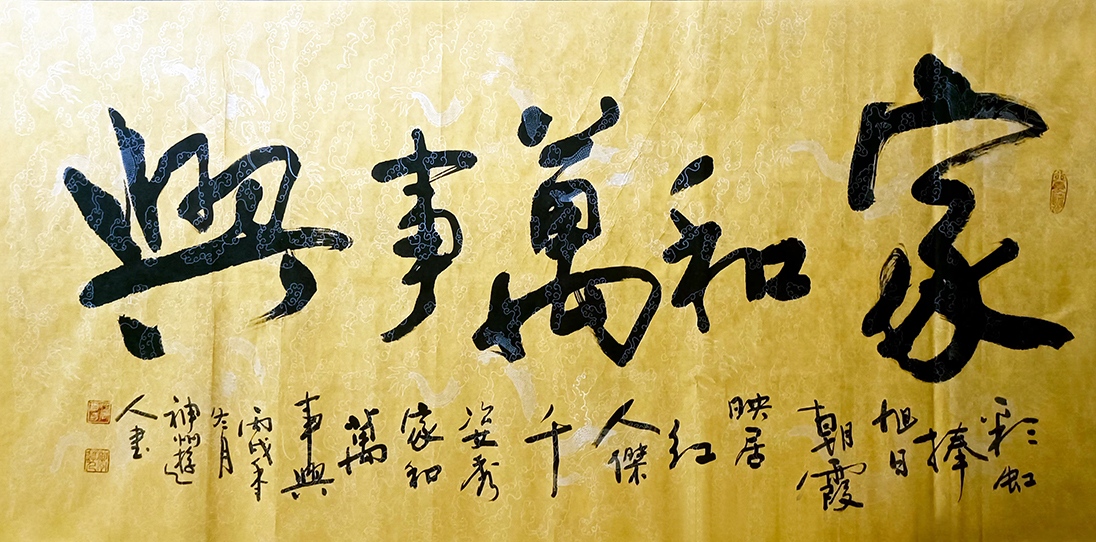 家和萬事興
彩虹
捧
旭日
朝霞
映居
红
人傑
千
姿秀
家和
萬
事興
丙戌年
冬月
神州遊
人書